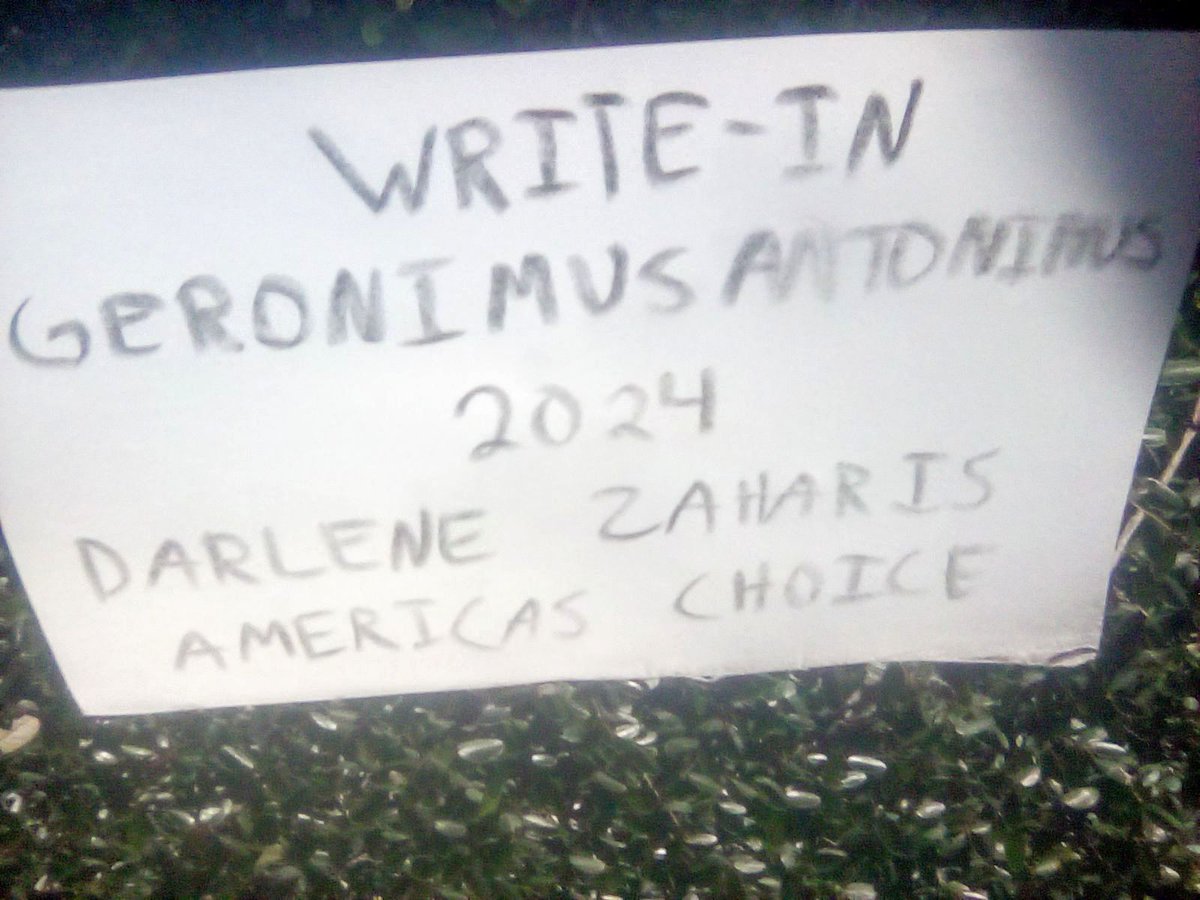 WRITE-IN
GERONIMUS ANTONIMUS
2024
DARLENE ZAHARIS
AMERICAS CHOICE